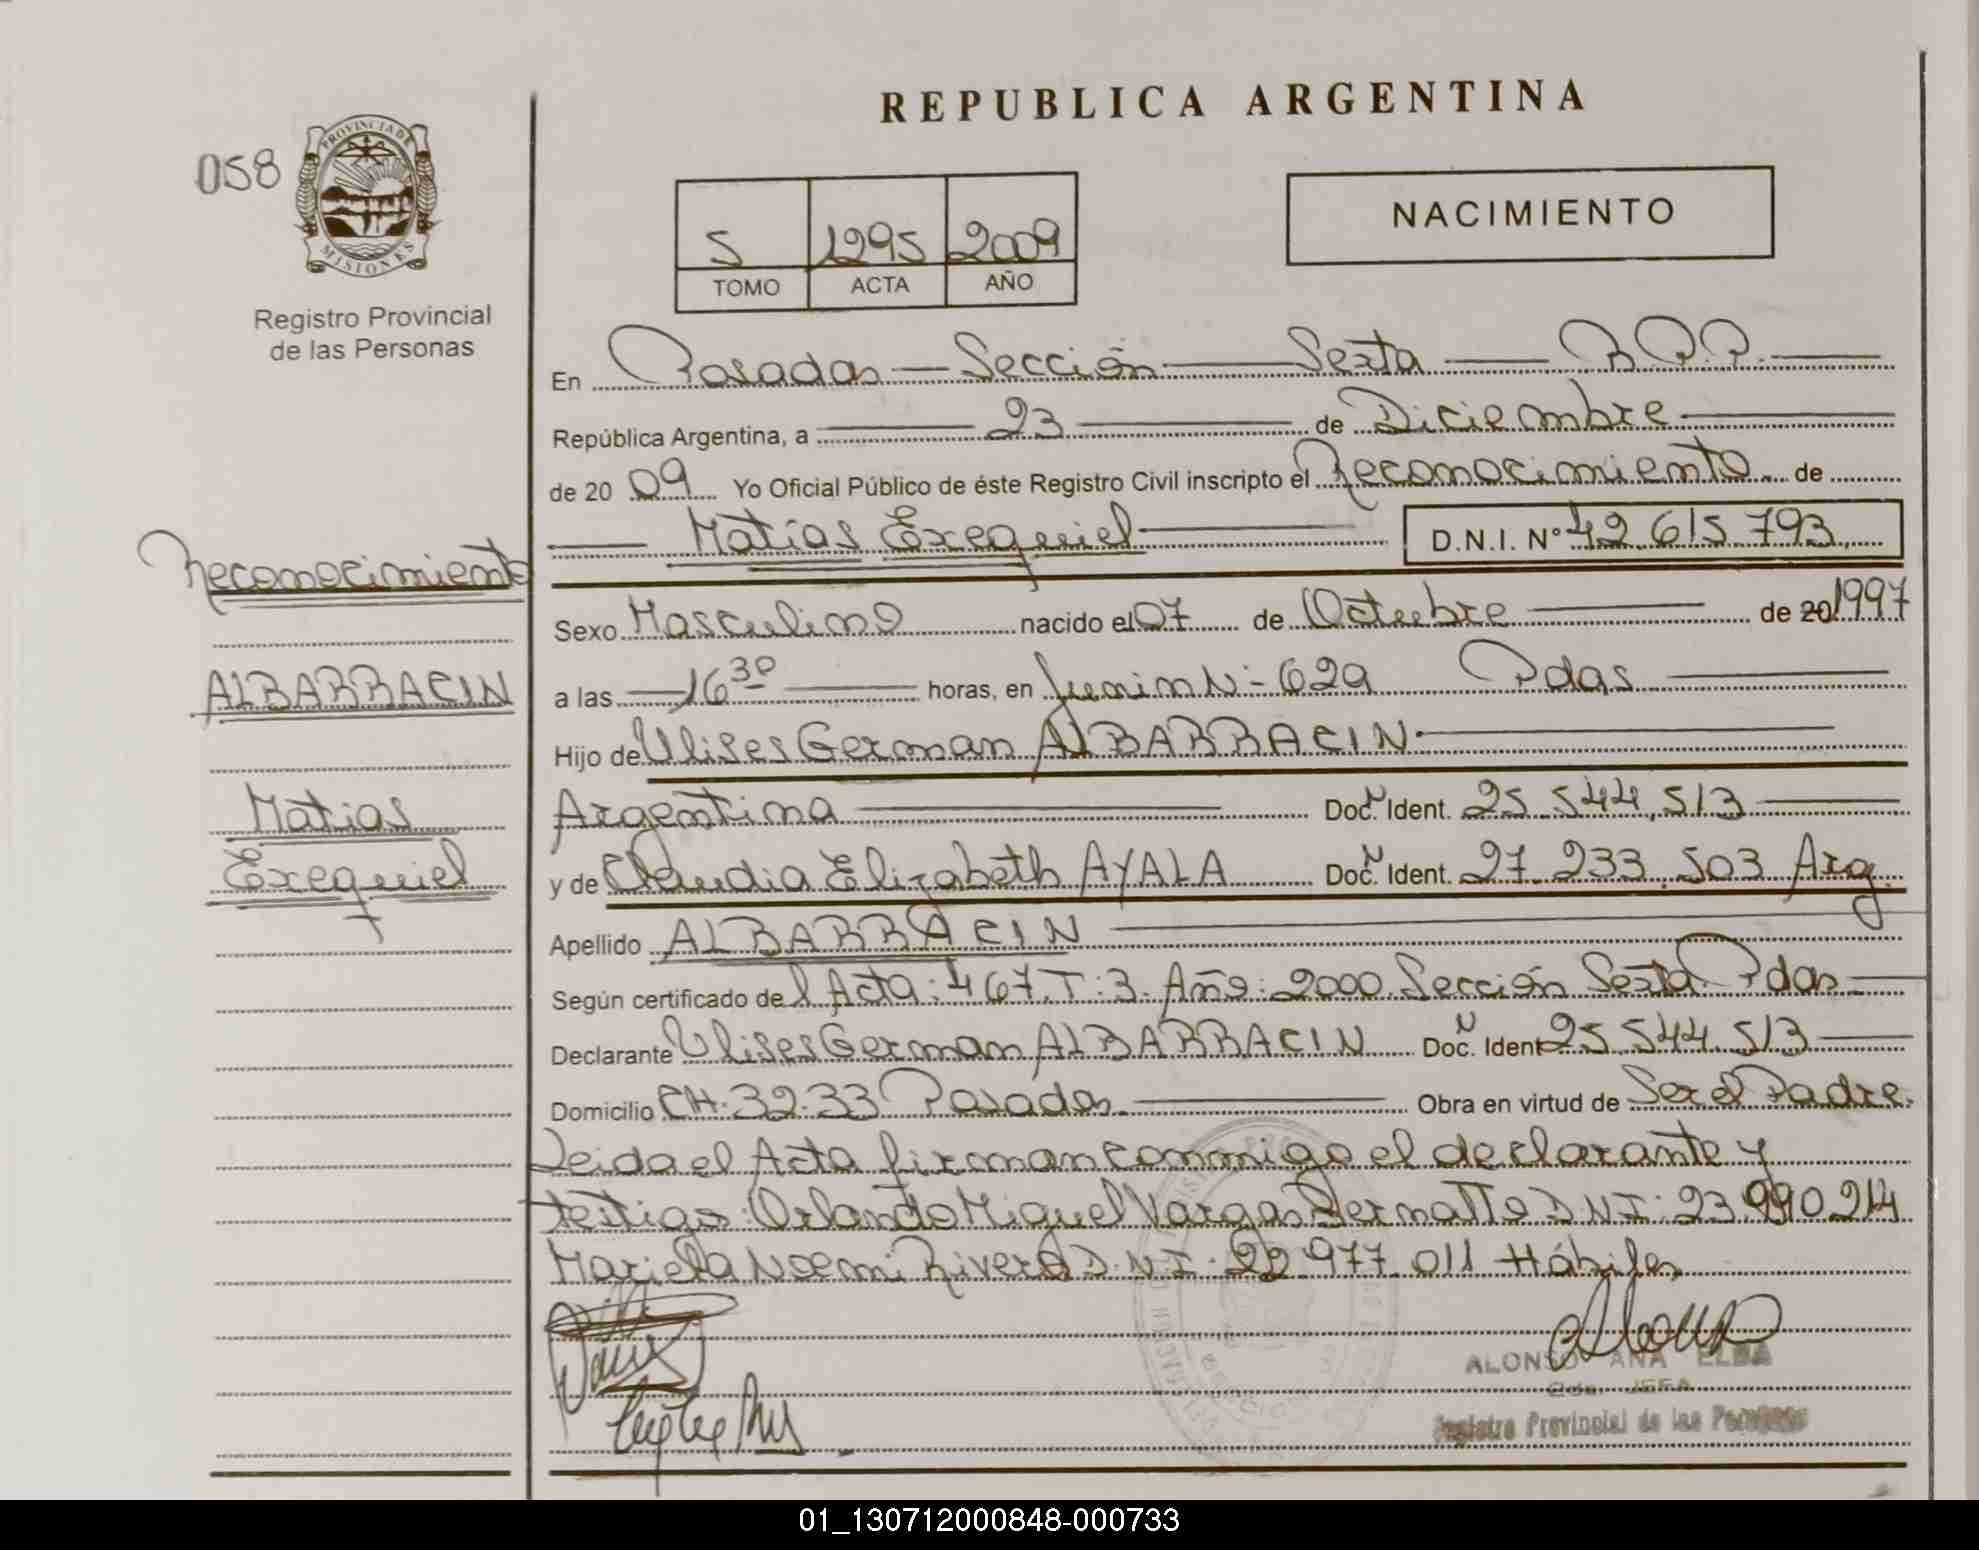 REPUBLICA ARGENTINA
058
PROVINCIA DE
MISIONES
Registro Provincial
de las Personas
5 1295 2009
TOMO ACTA AÑO
NACIMIENTO
En Posadas — Sección — Sexta — R.P.P. —
República Argentina, a — 23 — de Diciembre —
de 20 09 Yo Oficial Público de éste Registro Civil inscripto el Reconocimiento de
— Matías Exequiel — D.N.I. Nº 42.615.793
Reconocimiento
ALBARRACIN
Matias
Exequiel
Sexo Masculino nacido el 07 de Octubre — de 20 1997
a las — 16 30 — horas, en Junin N- 629 Pdas —
Hijo de Ulises German ALBARRACIN —
Argentina — Doc. Ident. 25.544.513 —
y de Claudia Elizabeth AYALA Doc. Ident. 27.233.503 Arg.
Apellido ALBARRACIN —
Según certificado de l Acta: 467. T: 3. Año: 2000. Sección Sexta Pdas —
Declarante Ulises German ALBARRACIN Doc. Ident 25.544.513 —
Domicilio CH. 32.33 Posadas — Obra en virtud de Ser el Padre.
Leida el Acta firman conmigo el declarante y
testigos: Orlando Miguel Vargas D.N.I: 23.990.214
Mariela Noemi Rivero D.N.I. 22.977.011 Hábiles
ALONSO ANA ELBA
2da. JEFA
Registro Provincial de las Personas
01_130712000848-000733